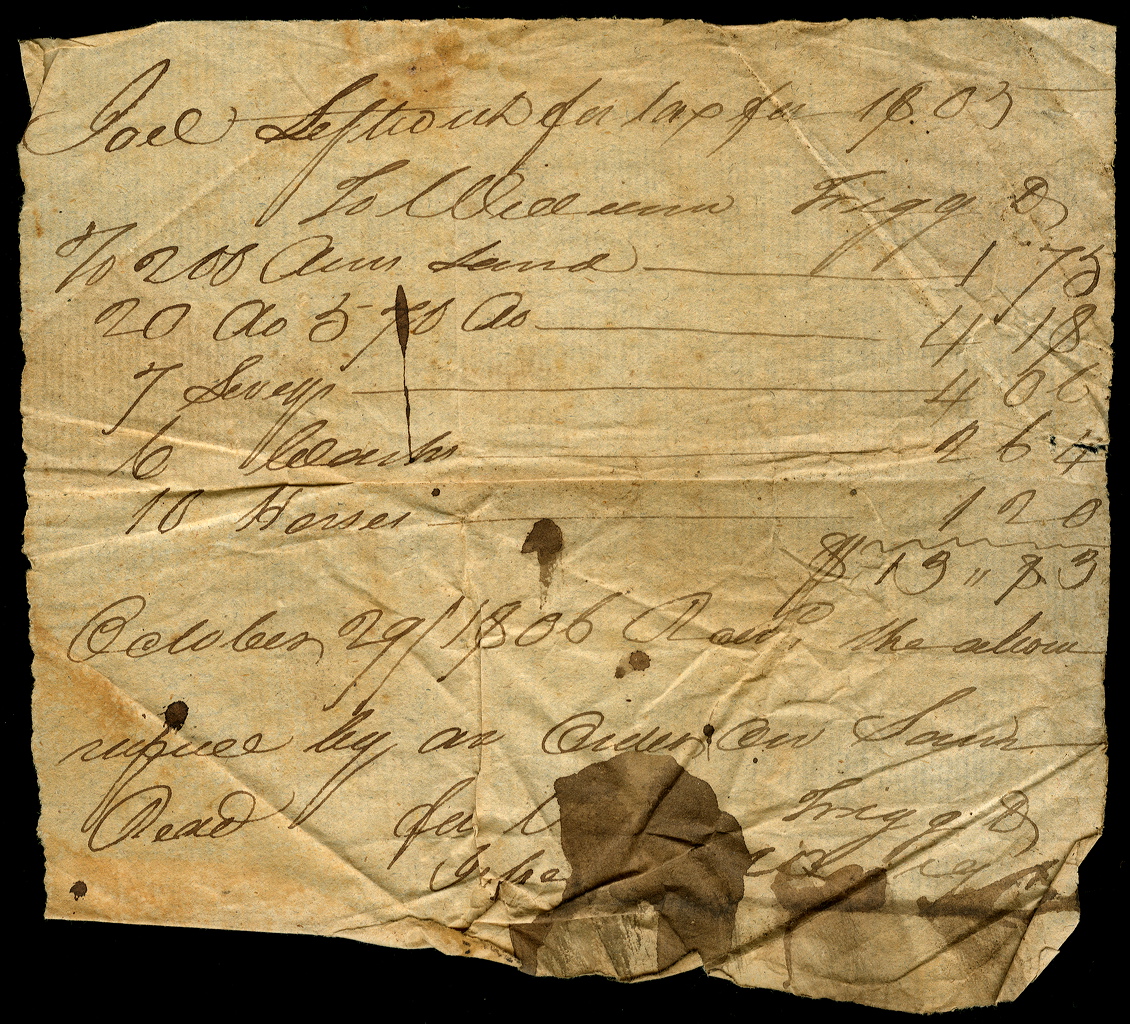 Joel Leftwich for tax for 1803
To William Trigg D
To 200 Acres Land 1 75
20 do 5 do 4 18
7 4 06
6 2 64
10 Horses 1 20
$ 13 " 83
October 29 1806 Recd the above
by an Order on
Read for W Trigg D
John